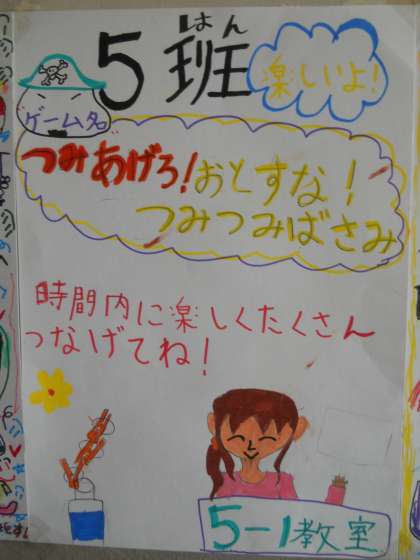 はん
5班
楽しいよ!
ゲーム名
つみあげろ!おとすな!
つみつみばさみ
時間内に楽しくたくさん
つなげてね!
5-1教室